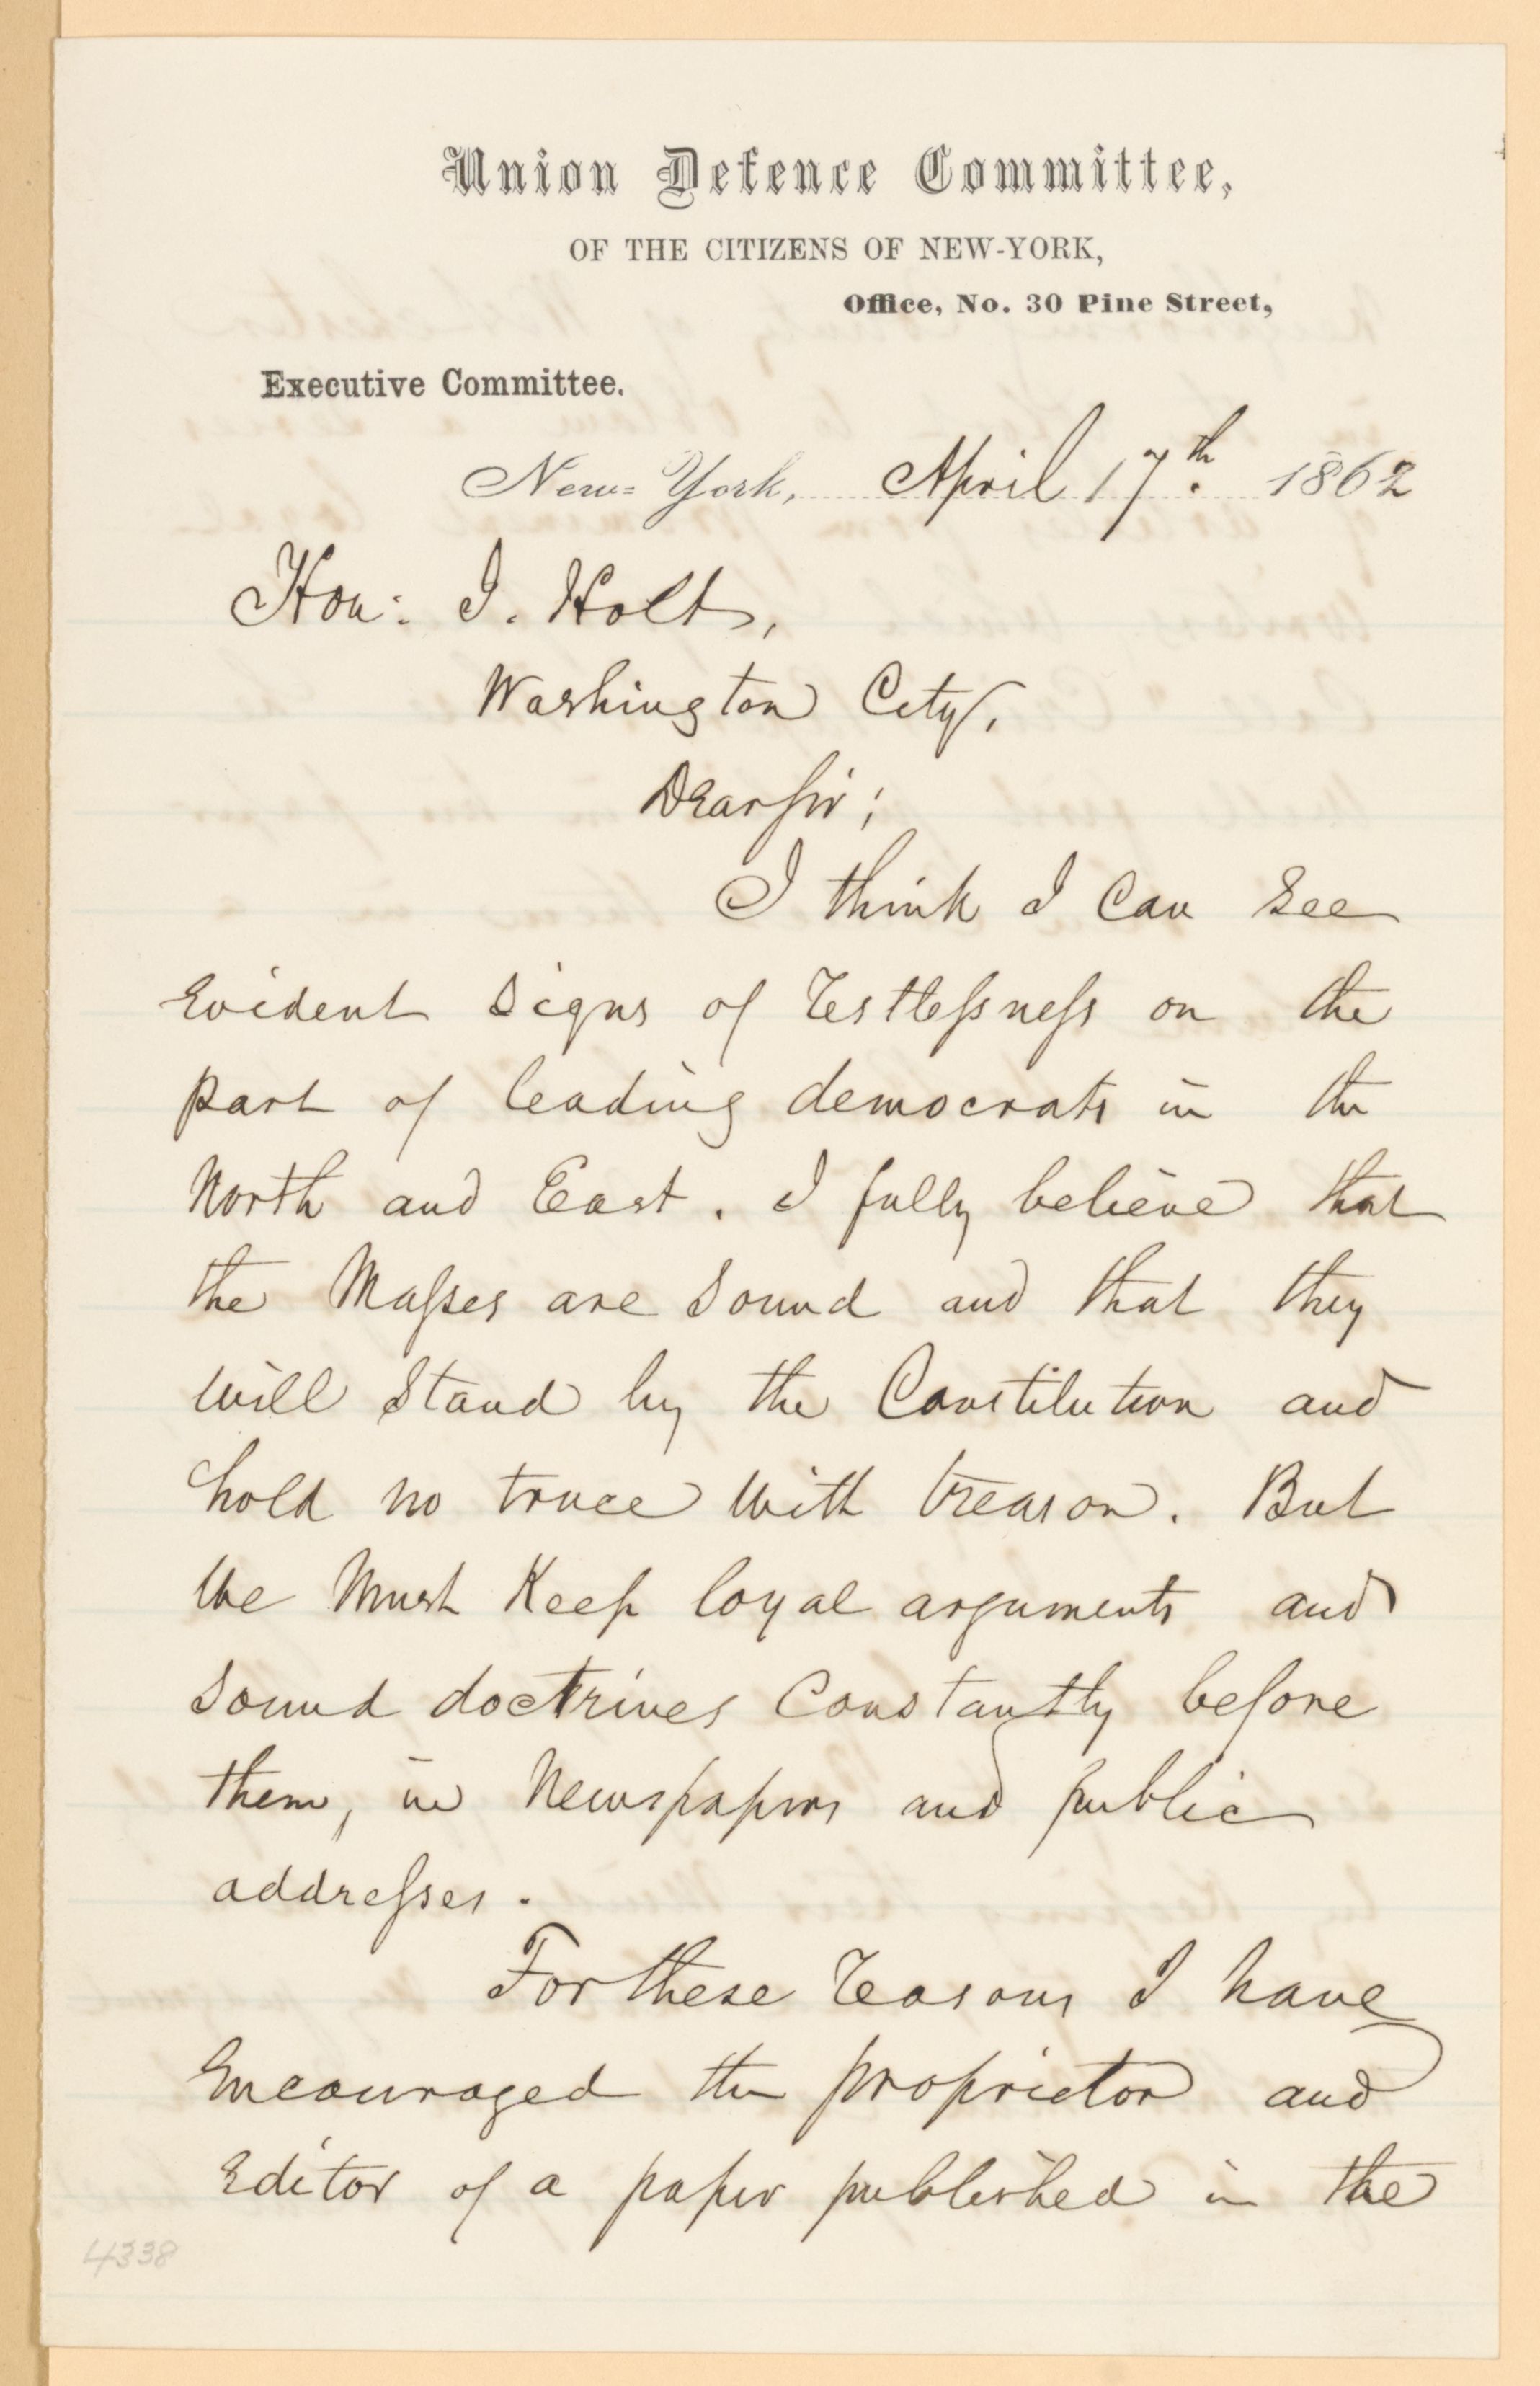 Union Defence Committee,
OF THE CITIZENS OF NEW-YORK,
Office, No. 30 Pine Street,
Executive Committee.
New-York, April 17th. 1862
Hon: J. Holt,
Washington City,
Dear Sir;
I think I can see
evident signs of restlessness on the
part of leading democrats in the
North and East. I fully believe that
the Masses are sound and that they
will stand by the Constitution and
hold no truce with treason. But
we must keep loyal arguments and
sound doctrines constantly before
them, in Newspapers and public
addresses.
For these reasons I have
encouraged the proprietor and
Editor of a paper published in the
4338